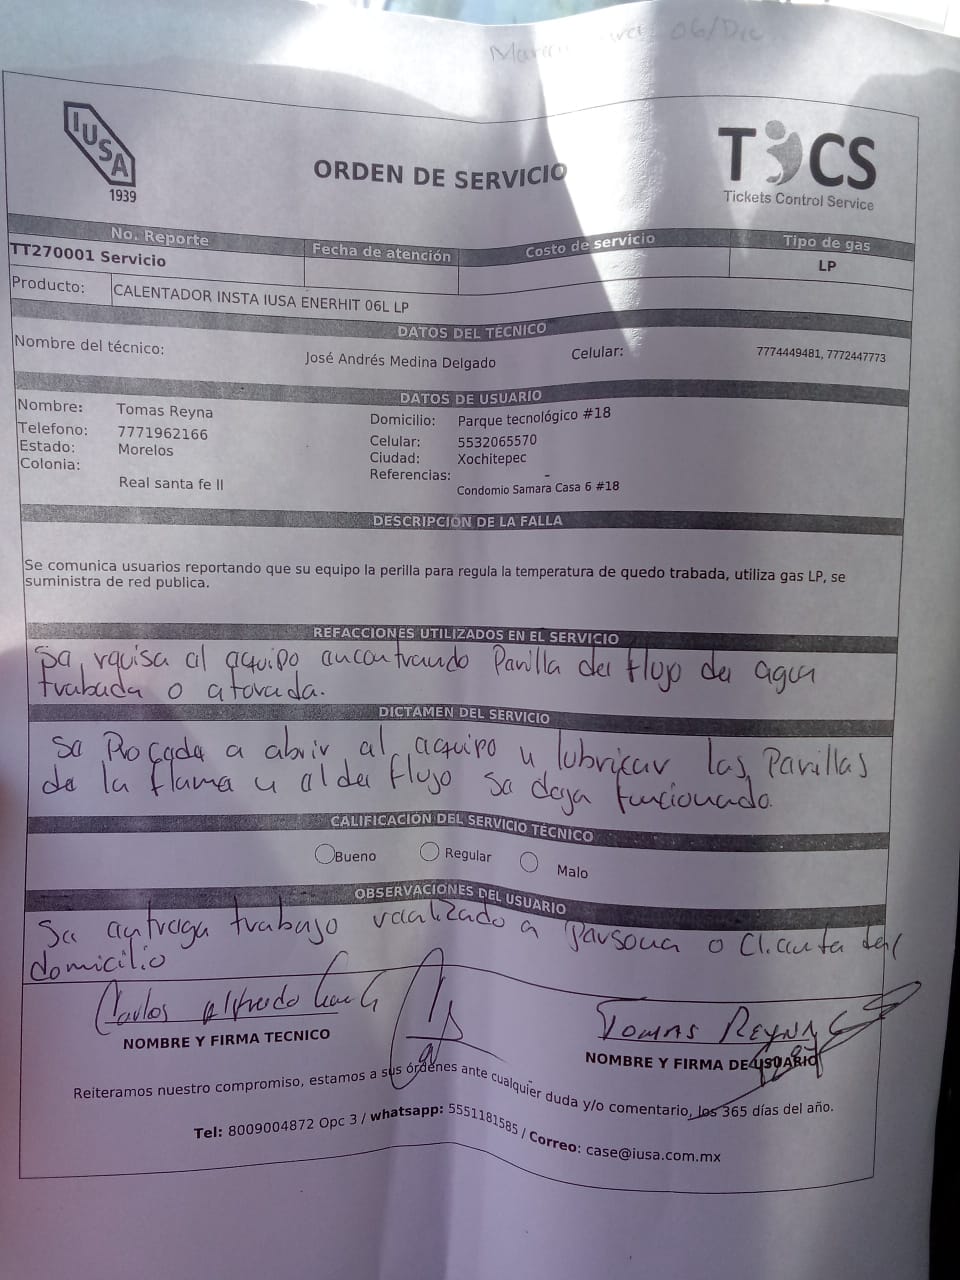 06/Dic
IUSA
1939
ORDEN DE SERVICIO
TCS
Tickets Control Service
No. Reporte
Fecha de atención
Costo de servicio
Tipo de gas
TT270001 Servicio
LP
Producto:
CALENTADOR INSTA IUSA ENERHIT 06L LP
DATOS DEL TÉCNICO
Nombre del técnico:
José Andrés Medina Delgado
Celular:
7774449481, 7772447773
DATOS DE USUARIO
Nombre: Tomas Reyna
Telefono: 7771962166
Estado: Morelos
Colonia:
Real santa fe II
Domicilio: Parque tecnológico #18
Celular: 5532065570
Ciudad: Xochitepec
Referencias: -
Condomio Samara Casa 6 #18
DESCRIPCIÓN DE LA FALLA
Se comunica usuarios reportando que su equipo la perilla para regula la temperatura de quedo trabada, utiliza gas LP, se
suministra de red publica.
REFACCIONES UTILIZADOS EN EL SERVICIO
Se rquisa al equipo encontrando Perilla del flujo de agua
trabada o atorada.
DICTAMEN DEL SERVICIO
Se Procede a abrir al equipo y lubricar las Perillas
de la flama y al del flujo se deja funcionado.
CALIFICACIÓN DEL SERVICIO TÉCNICO
Bueno
Regular
Malo
OBSERVACIONES DEL USUARIO
Se entrega trabajo realizado a Persona o Cliente del
domicilio
Carlos Alfredo
TOMAS REYNA
NOMBRE Y FIRMA TECNICO
NOMBRE Y FIRMA DE USUARIO
Reiteramos nuestro compromiso, estamos a sus órdenes ante cualquier duda y/o comentario, los 365 días del año.
Tel: 8009004872 Opc 3 / whatsapp: 5551181585 / Correo: case@iusa.com.mx